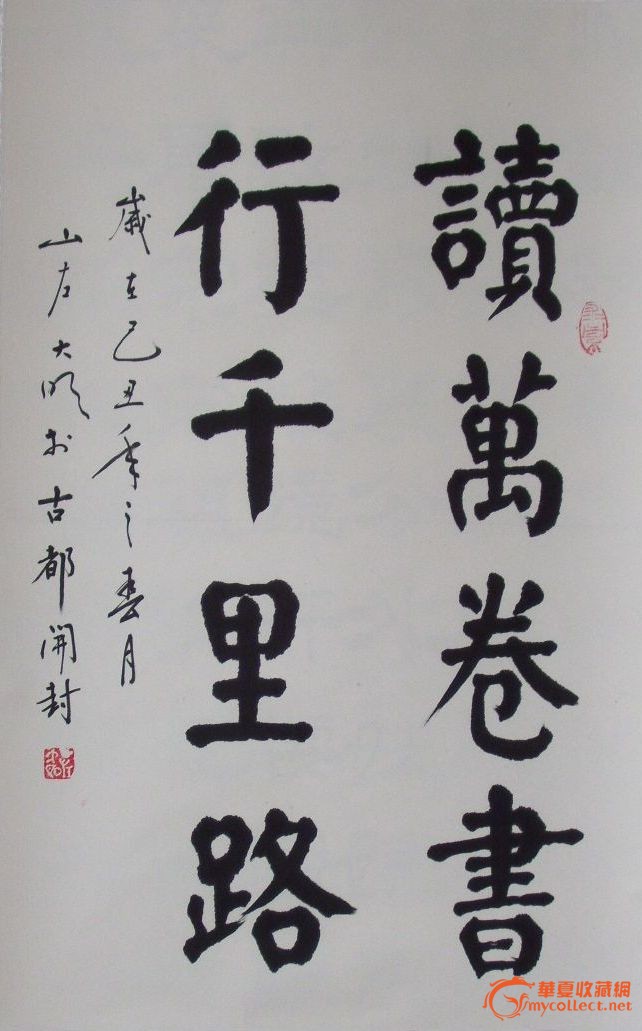 讀萬卷書
行千里路
歲在己丑年之春月
山左大順於古都開封
華夏收藏網
mycollect.net